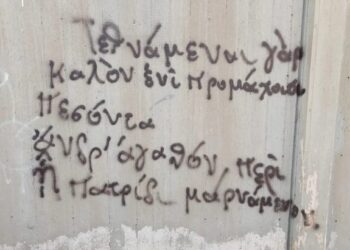 Τεθνάμεναι γὰρ
καλὸν ἐνὶ προμάχοισι
πεσόντα
ἄνδρ' ἀγαθὸν περὶ
ᾗ πατρίδι μαρνάμενον.